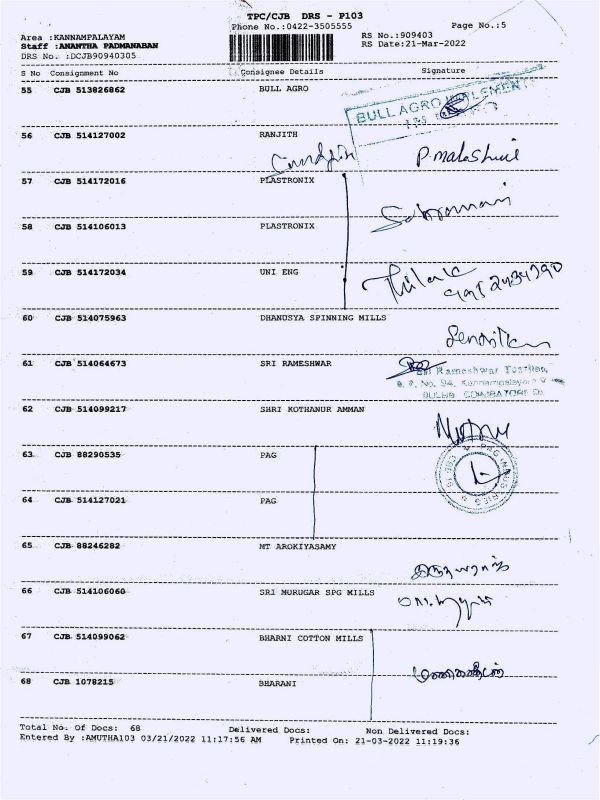 TPC/CJB DRS - P103
Phone No.:0422-3505555
Page No.:5
Area :KANNAMPALAYAM
RS No.:909403
Staff :ANANTHA PADMANABAN
RS Date:21-Mar-2022
DRS No. :DCJB90940305
S No Consignment No Consignee Details Signature
55 CJB 513826862 BULL AGRO
BULL AGRO IMPLEMENT
56 CJB 514127002 RANJITH
57 CJB 514172016 PLASTRONIX
58 CJB 514106013 PLASTRONIX
59 CJB 514172034 UNI ENG
Thilak
60 CJB 514075963 DHANUSYA SPINNING MILLS
61 CJB 514064673 SRI RAMESHWAR
Sri Rameshwar
62 CJB 514099217 SHRI KOTHANUR AMMAN
63 CJB 88290535 PAG
64 CJB 514127021 PAG
65 CJB 88246282 MT AROKIYASAMY
66 CJB 514106060 SRI MURUGAR SPG MILLS
67 CJB 514099062 BHARNI COTTON MILLS
68 CJB 1078215 BHARANI
Total No. Of Docs: 68 Delivered Docs: Non Delivered Docs:
Entered By :AMUTHA103 03/21/2022 11:17:56 AM Printed On: 21-03-2022 11:19:36